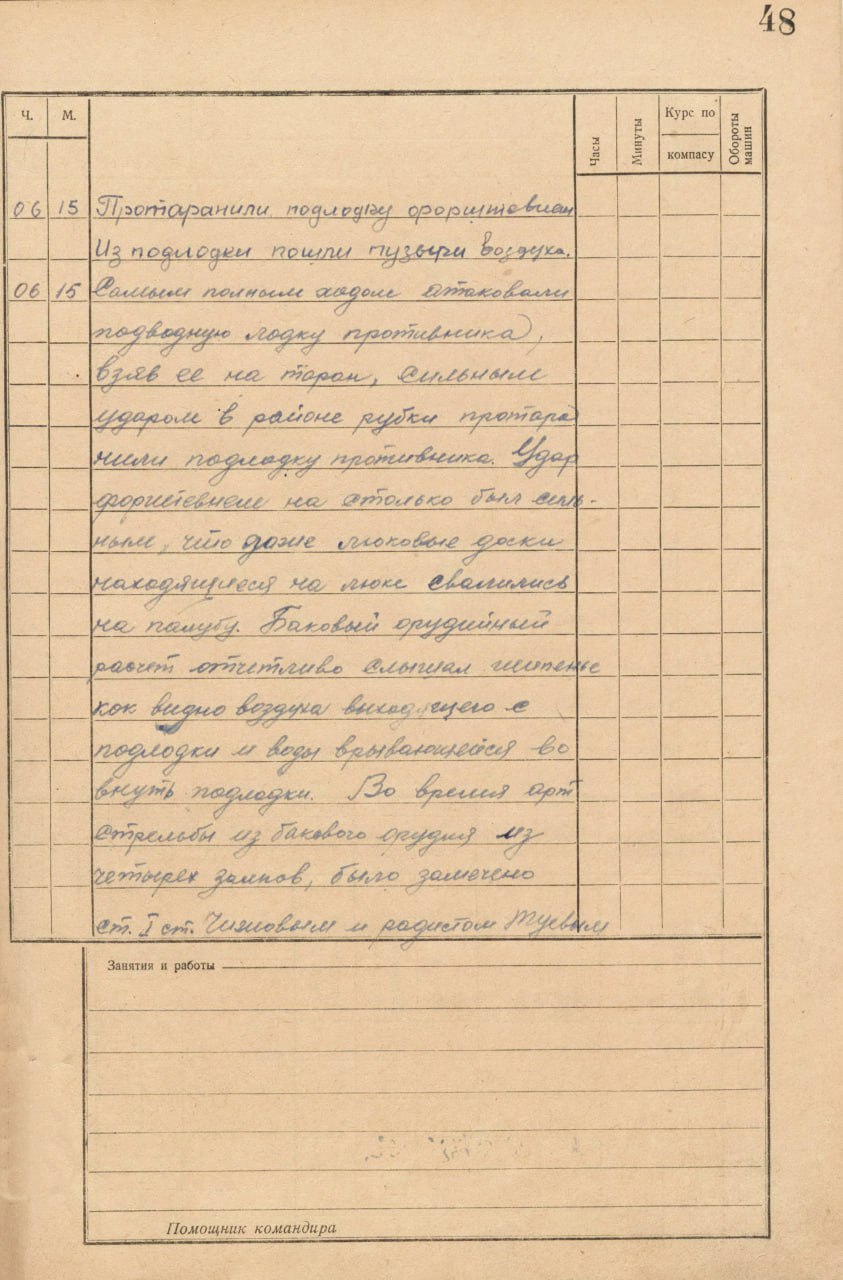 48
Ч. М. Часы Минуты Курс по компасу Обороты машин
06 15 Протаранили подлодку форштевнем
Из подлодки пошли пузыри воздуха.
06 15 Самым полным ходом атаковали
подводную лодку противника,
взяв ее на таран, сильным
ударом в районе рубки протара
нили подлодку противника. Удар
форштевнем на столько был силь-
ным, что даже люковые доски
находящиеся на люке свалились
на палубу. Баковый орудийный
расчет отчетливо слышал шипенье
как видно воздуха выходящего с
подлодки и воды врывающейся во
внуть подлодки. Во время арт
стрельбы из бакового орудия из
четырех залпов, было замечено
ст. I ст. Чижовым и радистом
Занятия и работы
Помощник командира